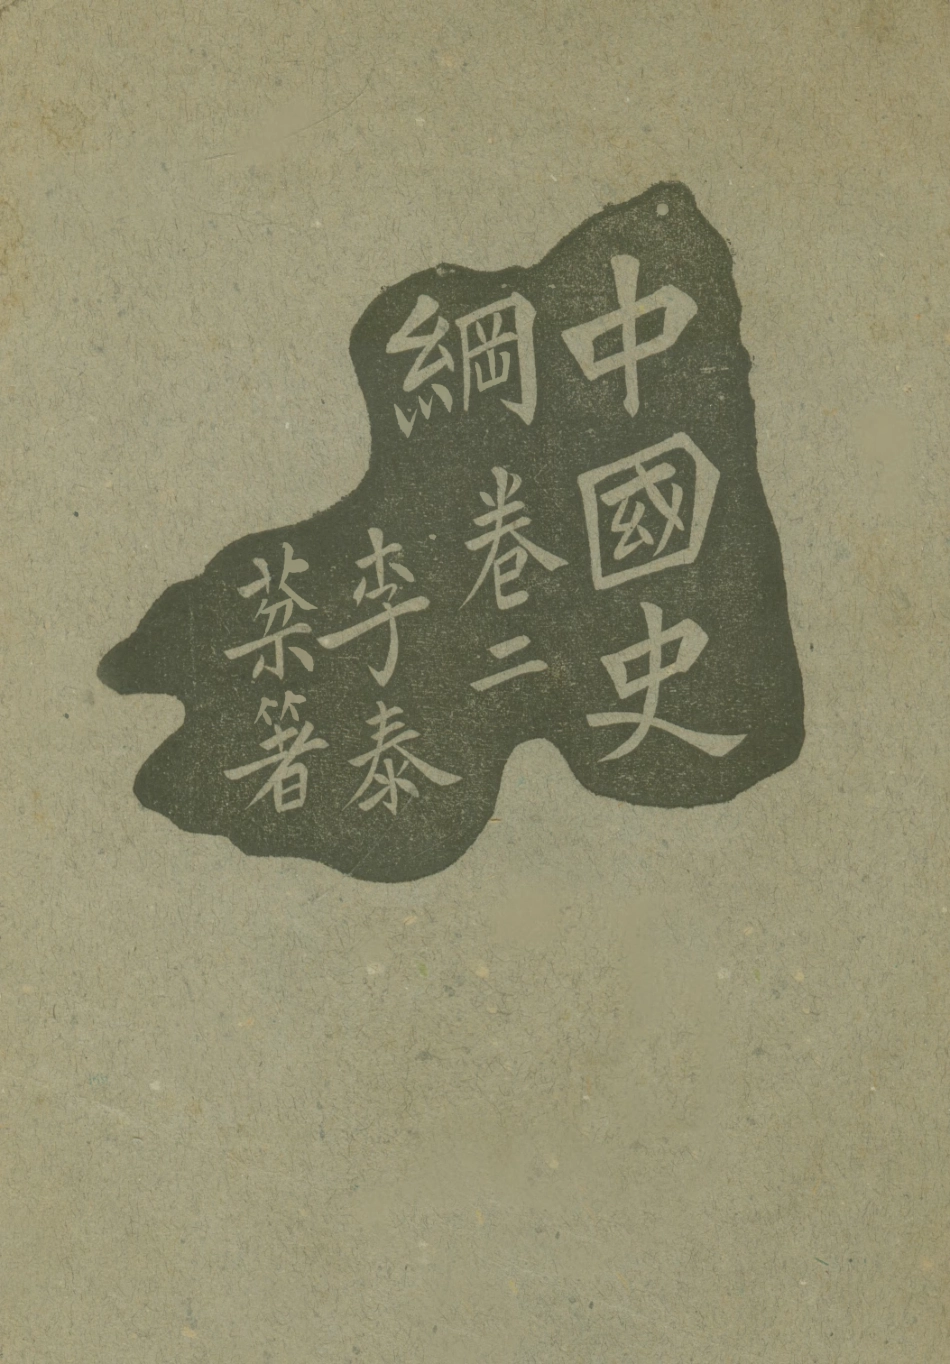 中國史
綱 卷二
李泰
棻著